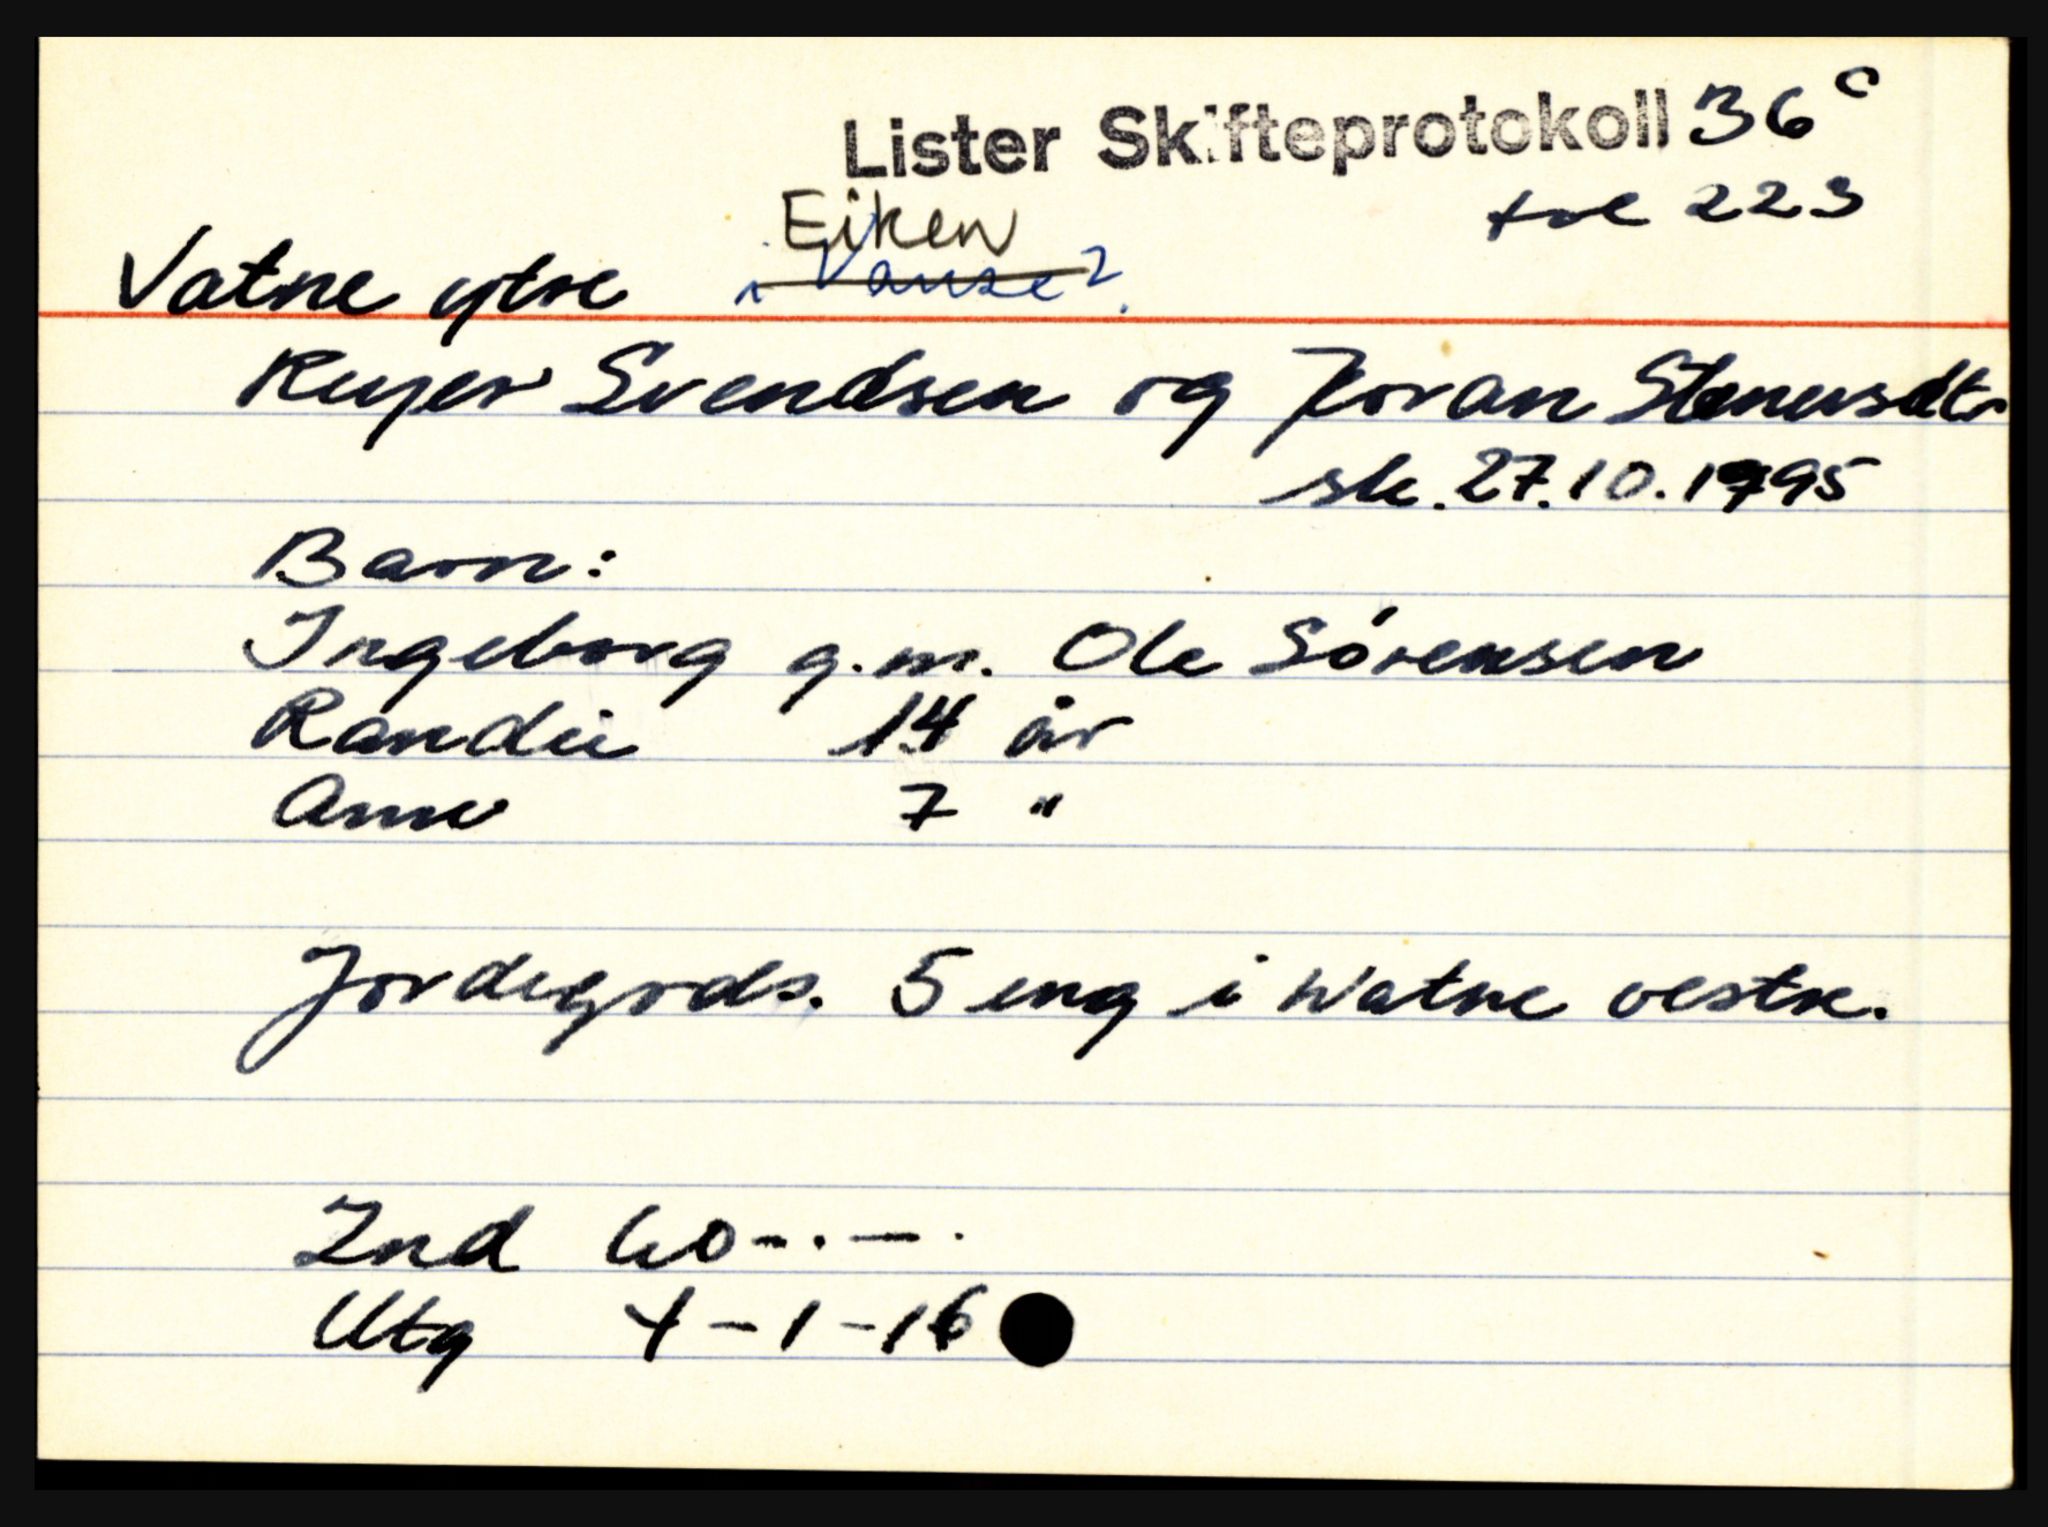 Lister Skifteprotokoll 36 c
fol 223
Eiken
Vatne ytre i Vanse?
Reyer Svendsen og Joran Stenersdtr
sk. 27.10.1795
Barn:
Ingeborg g.m. Ole Sórensen
Randii 14 år
Anne 7 "
Jordegods. 5 eng i Watne vestre.
Ind 60-.-.
Utg 4-1-16